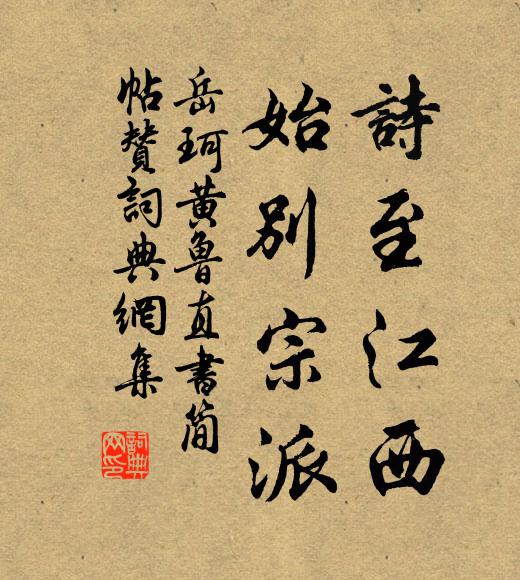 詩至江西
始別宗派
岳珂黃魯直書簡
帖贊詞典網集
詞典
网印